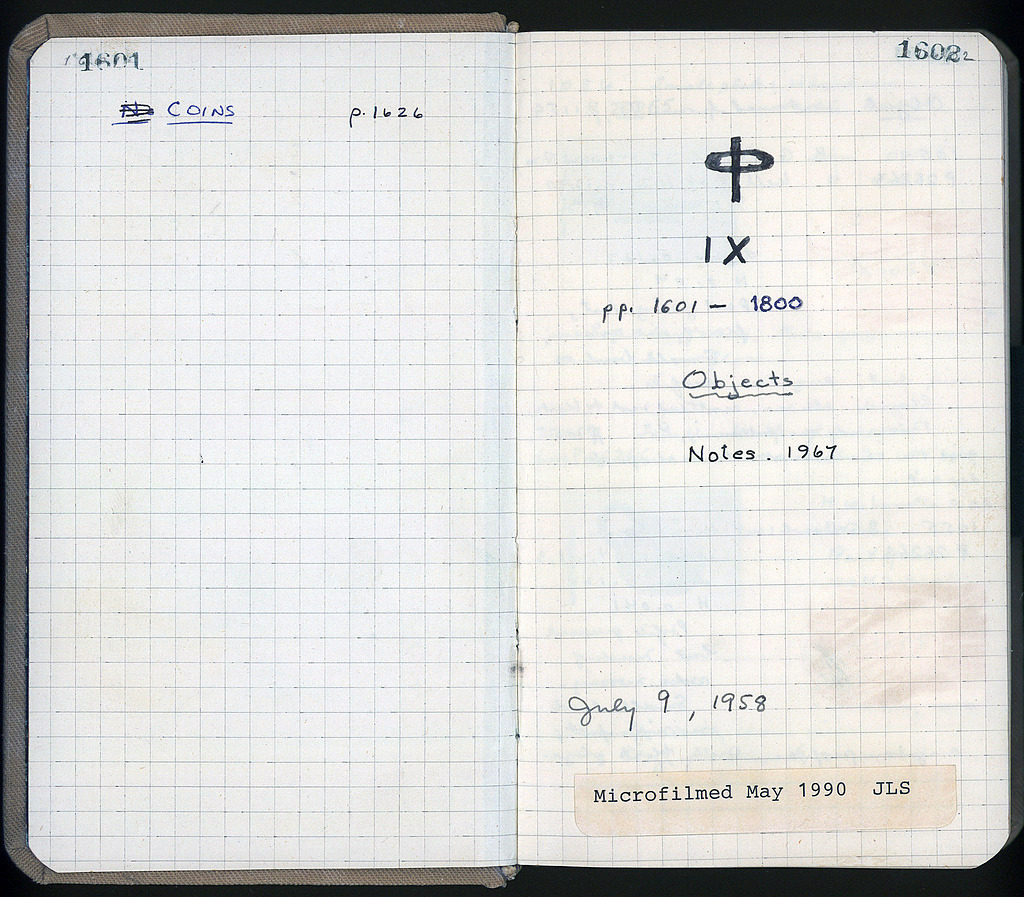 1601
COINS p.1626
1602
Φ
IX
pp. 1601 – 1800
Objects
Notes. 1967
July 9, 1958
Microfilmed May 1990 JLS